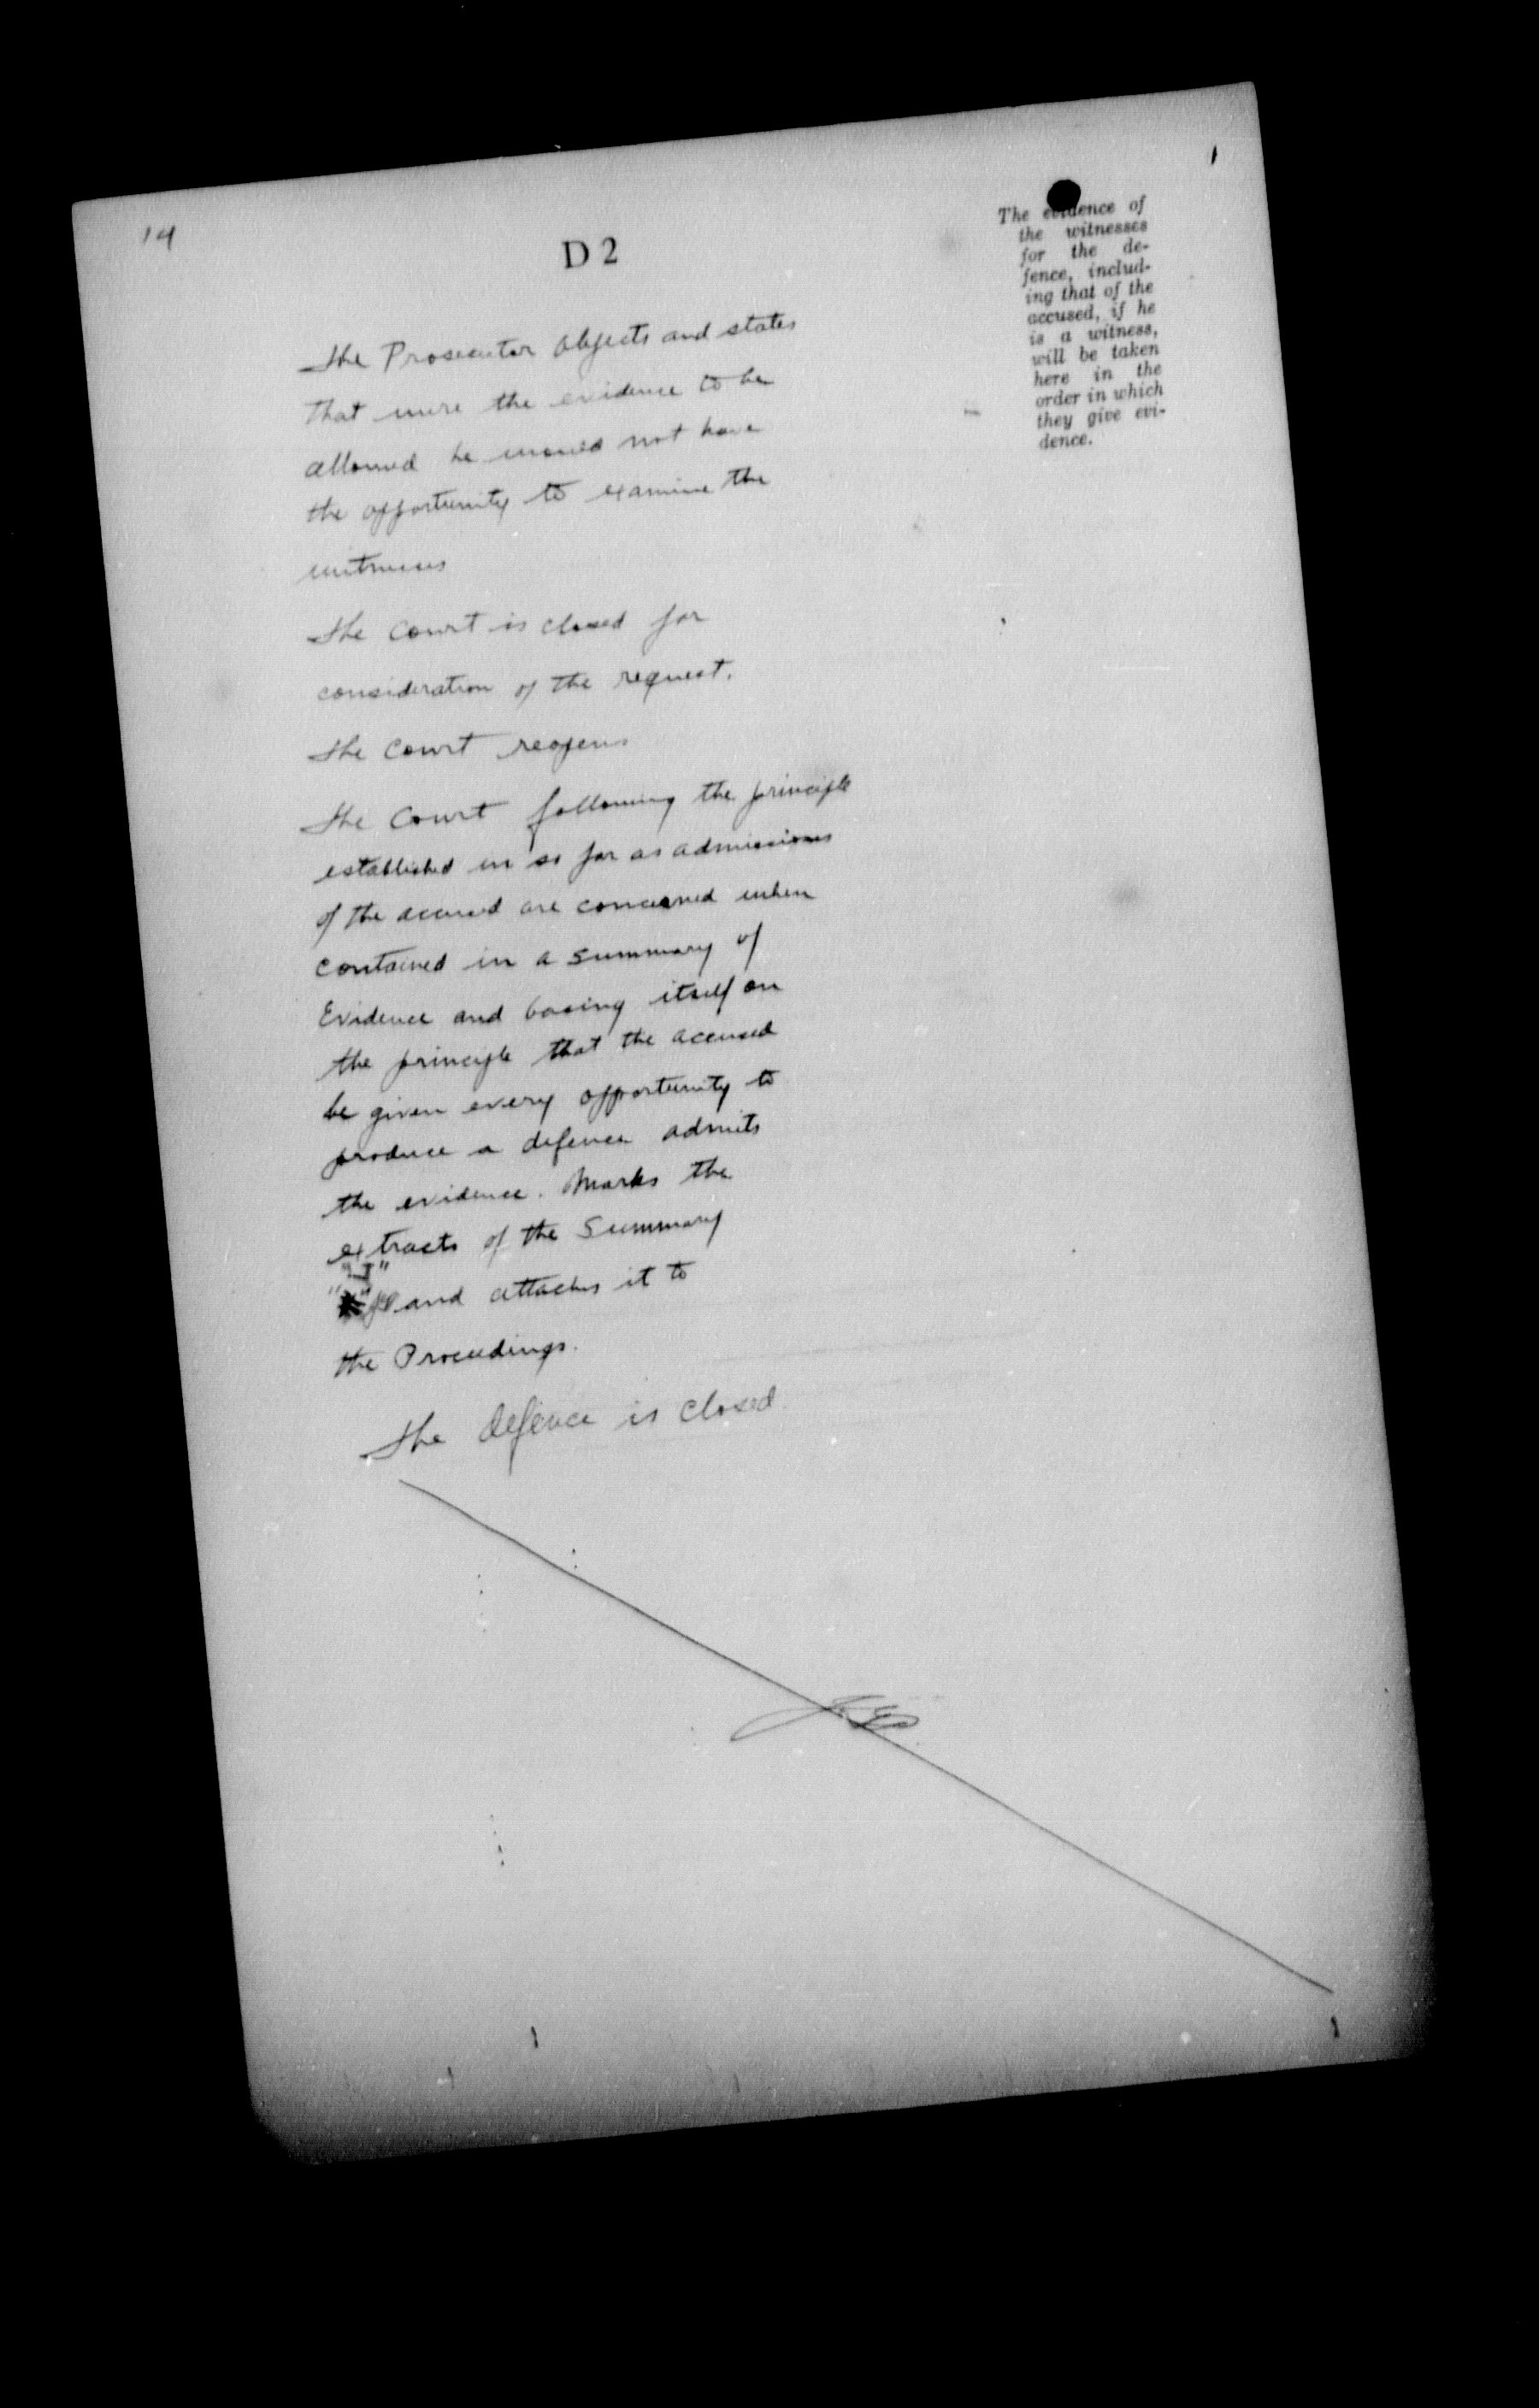 14
D 2
The evidence of
the witnesses
for the de-
fence, includ-
ing that of the
accused, if he
is a witness,
will be taken
here in the
order in which
they give evi-
dence.
The Prosecutor objects and states
that were the evidence to be
allowed he would not have
the opportunity to examine the
witnesses
The Court is closed for
consideration of the request.
The Court reopens
The Court following the principle
established in so far as admissions
of the accused are concerned when
contained in a summary of
Evidence and basing itself on
the principle that the accused
be given every opportunity to
produce a defence admits
the evidence. Marks the
extracts of the Summary
and attaches it to
the Proceedings.
The defence is closed